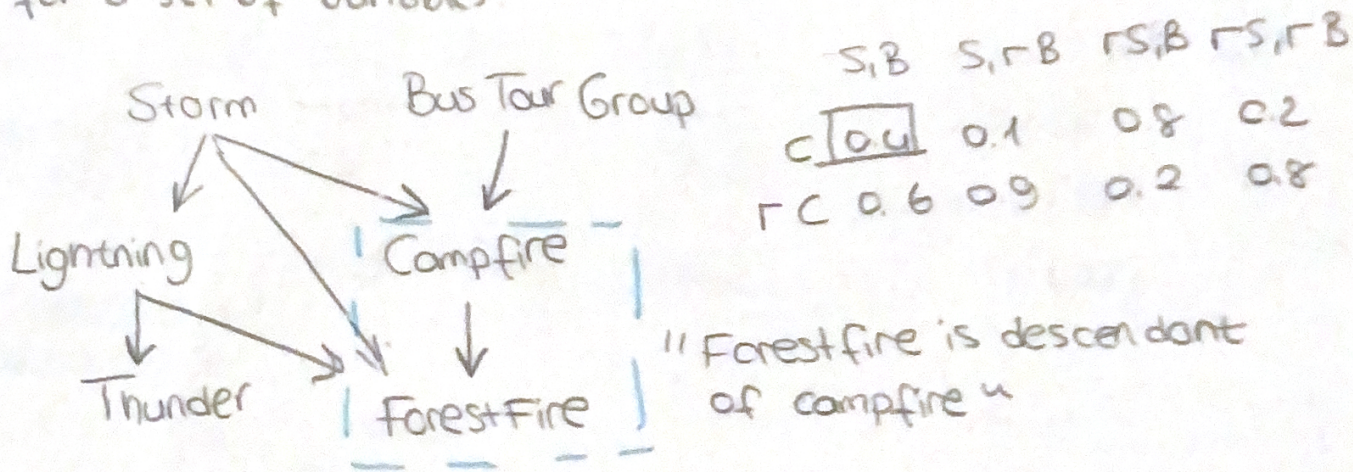 for a set of variables
Storm Bus Tour Group
Lightning Campfire
Thunder ForestFire
S,B S,¬B ¬S,B ¬S,¬B
C 0.4 0.1 0.8 0.2
¬C 0.6 0.9 0.2 0.8
"Forestfire is descendant
of campfire"